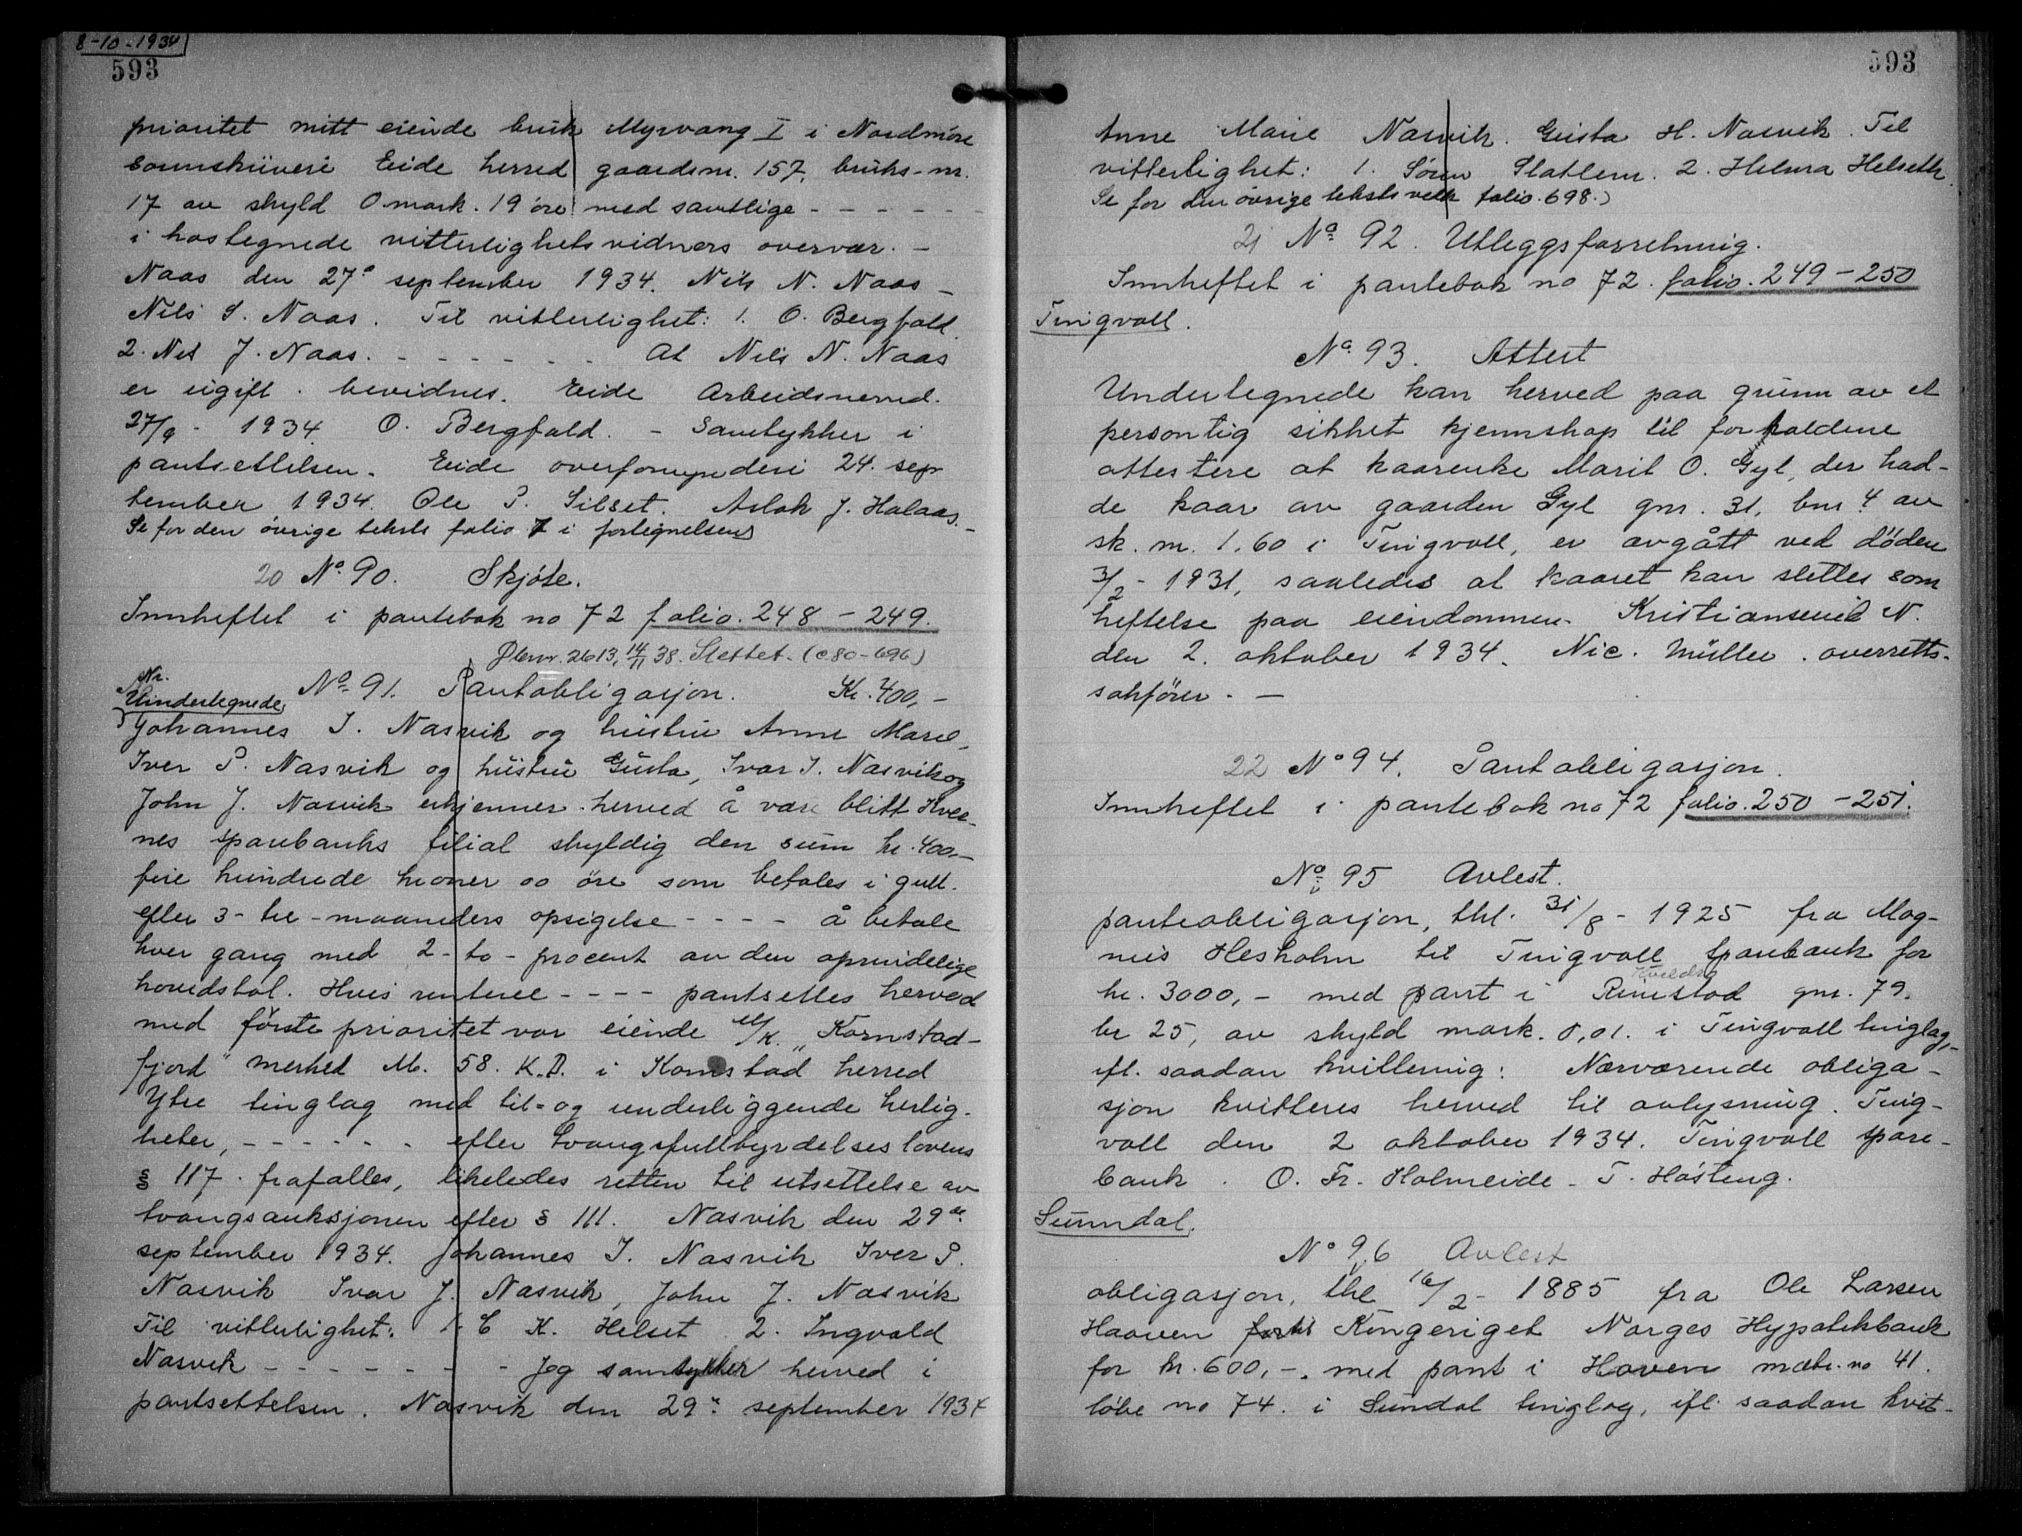 8-10-1934
593
prioritet mitt eiende bruk Myrvang I i Nordmöre
sorenskriveri Eide herred gaardsnr. 157, bruks-nr.
17 av skyld 0 mark. 19 öre med samtlige - - - - - -
i hostegnede vitterlighetsvidners overvær. -
Naas den 27de september 1934. Nils N. Naas -
Nils S. Naas. Til vitterlighet: 1. O. Bergfald.
2. Nils J. Naas. - - - - - - - At Nils N. Naas
er ugift. bevidnes. Eide Arbeidsnevnd.
27/9 - 1934. O. Bergfald. - Samtykker i
pantsettelsen. Eide overformynderi 24. sep-
tember 1934. Ole P. Silset. Aslak J. Halaas. -
Se for den övrige tekst folio 7 i fortegnelsen
20 No. 90. Skjöte.
Innheftet i pantebok no 72 folio. 248 - 249.
Dbnr. 2613, 14/11 38. Slettet. (c 80-696)
Nr.
Undertegnede No. 91. Pantobligasjon. Kr. 400,-
Johannes I. Nasvik og hustru Anne Marie,
Iver P. Nasvik og hustru Gusta, Ivar J. Nasvik og
John J. Nasvik erkjenner herved å være blitt Kver-
nes sparebanks filial skyldig den sum kr. 400,-
fire hundrede kroner 00 öre som betales i gull.
efter 3 - tre - maaneders opsigelse - - - - å betale
hver gang med 2 - to - procent av den oprindelige
hovedstol. Hvis rentene - - - - pantsettes herved
med förste prioritet vor eiende M/K. "Kornstad-
fjord" merket M. 58. K.D. i Kornstad herred
Ytre tinglag med til- og underliggende herlig-
heter, - - - - - - efter tvangsfullbyrdelseslovens
§ 117 frafalles, likeledes retten til utsettelse av
tvangsauksjonen efter § 111. Nasvik den 29de
september 1934. Johannes I. Nasvik Iver P.
Nasvik Ivar J. Nasvik, John J. Nasvik
Til vitterlighet: 1. C K. Helset. 2. Ingvald
Nasvik - - - - - - - Jeg samtykker herved i
pantsettelsen. Nasvik den 29de september 1934
593
Anne Marie Nasvik. Gusta H. Nasvik. Til
vitterlighet: 1. Sören Slatlem. 2. Helma Helseth
Se for den övrige teksts vedk folio. 698.)
21 No. 92. Utleggsforretning.
Innheftet i pantebok no 72. folio. 249 - 250
Tingvoll.
No. 93. Attest
Undertegnede kan herved paa grunn av et
personlig sikkert kjennskap til forholdene
attestere at kaarenke Marit O. Gyl, der had-
de kaar av gaarden Gyl gnr. 31, bnr 4 av
sk. m. 1.60 i Tingvoll, er avgått ved döden
3/2 - 1931, saaledes at kaaret kan slettes som
heftelse paa eiendommen. Kristiansund N.
den 2. oktober 1934. Nic. Müller. overretts-
sakförer. -
22 No 94. Pantobligasjon.
Innheftet i pantebok no 72 folio. 250 - 251.
No. 95 Avlest.
panteobligasjon, thl. 31/8 - 1925 fra Mag-
nus Hesholm til Tingvoll Sparebank for
kr. 3000,- med pant i Rimstad gnr. 79.
br 25, av skyld mark. 0,01. i Tingvoll tinglag, -
ifl. saadan kvittering: Nærværende obliga-
sjon kvitteres herved til avlysning. Ting-
voll den 2 oktober 1934. Tingvoll spare-
bank. O. Fr. Holmeide. T. Hästeng.
Sunndal.
No 96 Avlest
obligasjon, thl 16/2 - 1885 fra Ole Larsen
Haaven til Kongeriget Norges Hypotekbank
for kr. 600,-. med pant i Hoven matr. no 41.
löbe no 74. i Sundal tinglag, ifl. saadan kvit-